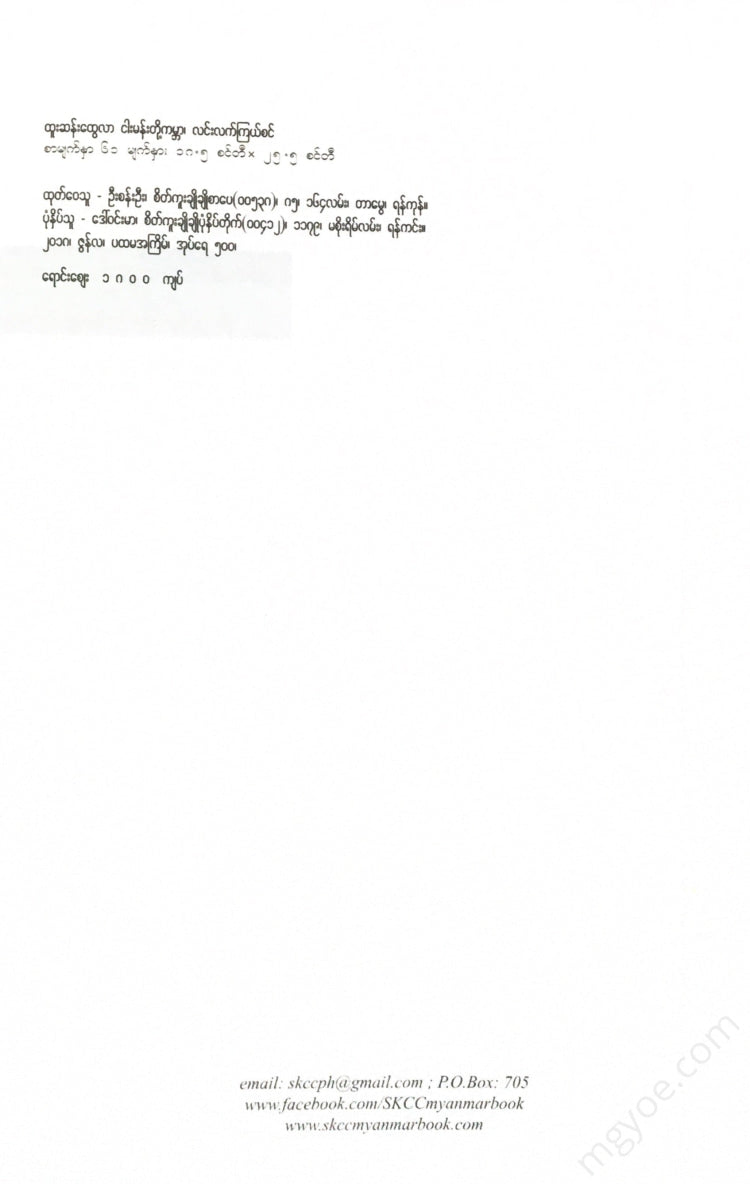 ထူးဆန်းထွေလာ ငါးမန်းတို့ကမ္ဘာ၊ လင်းလက်ကြယ်စင်
စာမျက်နှာ ၆၁ မျက်နှာ၊ ၁၈.၅ စင်တီ× ၂၅.၅ စင်တီ
ထုတ်ဝေသူ - ဦးစန်းဦး၊ စိတ်ကူးချိုချိုစာပေ(၀၀၅၃၈)၊ ၈၅၊ ၁၆၄လမ်း၊ တာမွေ၊ ရန်ကုန်။
ပုံနှိပ်သူ - ဒေါ်ဝင်းမာ၊ စိတ်ကူးချိုချိုပုံနှိပ်တိုက်(၀၀၄၁၂)၊ ၁၁၇၉၊ မစိုးရိမ်လမ်း၊ ရန်ကင်း။
၂၀၁၈၊ ဇွန်လ၊ ပထမအကြိမ်၊ အုပ်ရေ ၅၀၀၊
ရောင်းဈေး ၁ ၈ ၀ ၀ ကျပ်
email: skccph@gmail.com ; P.O.Box: 705
www.facebook.com/SKCCmyanmarbook
www.skccmyanmarbook.com
mgyoe.com